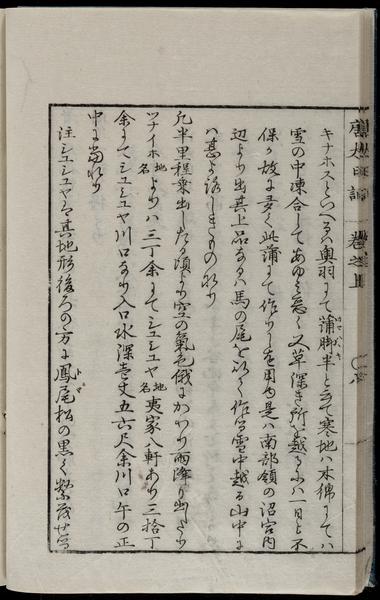 キナホスといへるハ奥羽にて蒲脚半と云て寒地ハ木綿にてハ
雪の中凍合してあゆミ悪く又草深き所を越るにハ一日と不
保か故に多く此蒲にて作りしを用ゆ是ハ南部領の沼宮内
辺より出其上品なるハ馬の尾を以て作る雪中越る山中に
ハ甚よろしきもの也
凡半里程乗出したる頃より空の氣色俄にかハり雨降り出たり
ツナイホ地名よりハ三丁余にてシユシユヤ地名夷家八軒あり三拾丁
余にてシユシユヤ川口なり入口水深壱丈五六尺余川口午の正
中に当れり
注シユシユヤは其地形後ろの方に鳳尾松の黒く繁茂せる